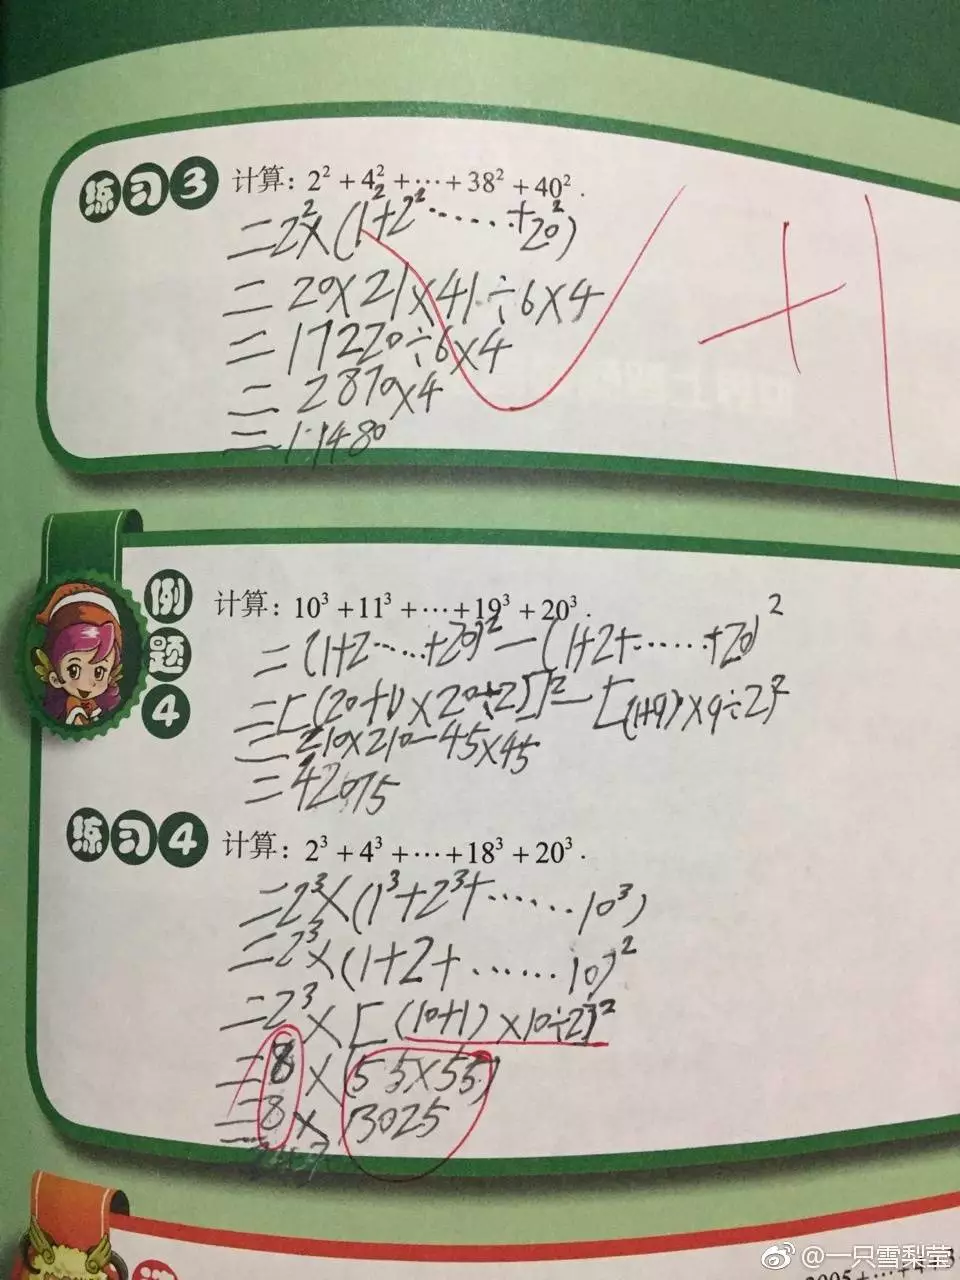 练习3 计算：2²+4²+⋯+38²+40².
=2²×(1²+2²······+20²)
=20×21×41÷6×4
=17220÷6×4
=2870×4
=11480
+1
例题4 计算：10³+11³+⋯+19³+20³.
=(1+2·····+20)²-(1+2+······+20)²
=[(20+1)×20÷2]²-[(1+9)×9÷2]²
=210×210-45×45
=42075
练习4 计算：2³+4³+⋯+18³+20³.
=2³×(1³+2³+······10³)
=2³×(1+2+······10)²
=2³×[(10+1)×10÷2]²
=8×(55×55)
=8×3025
@一只雪梨莹